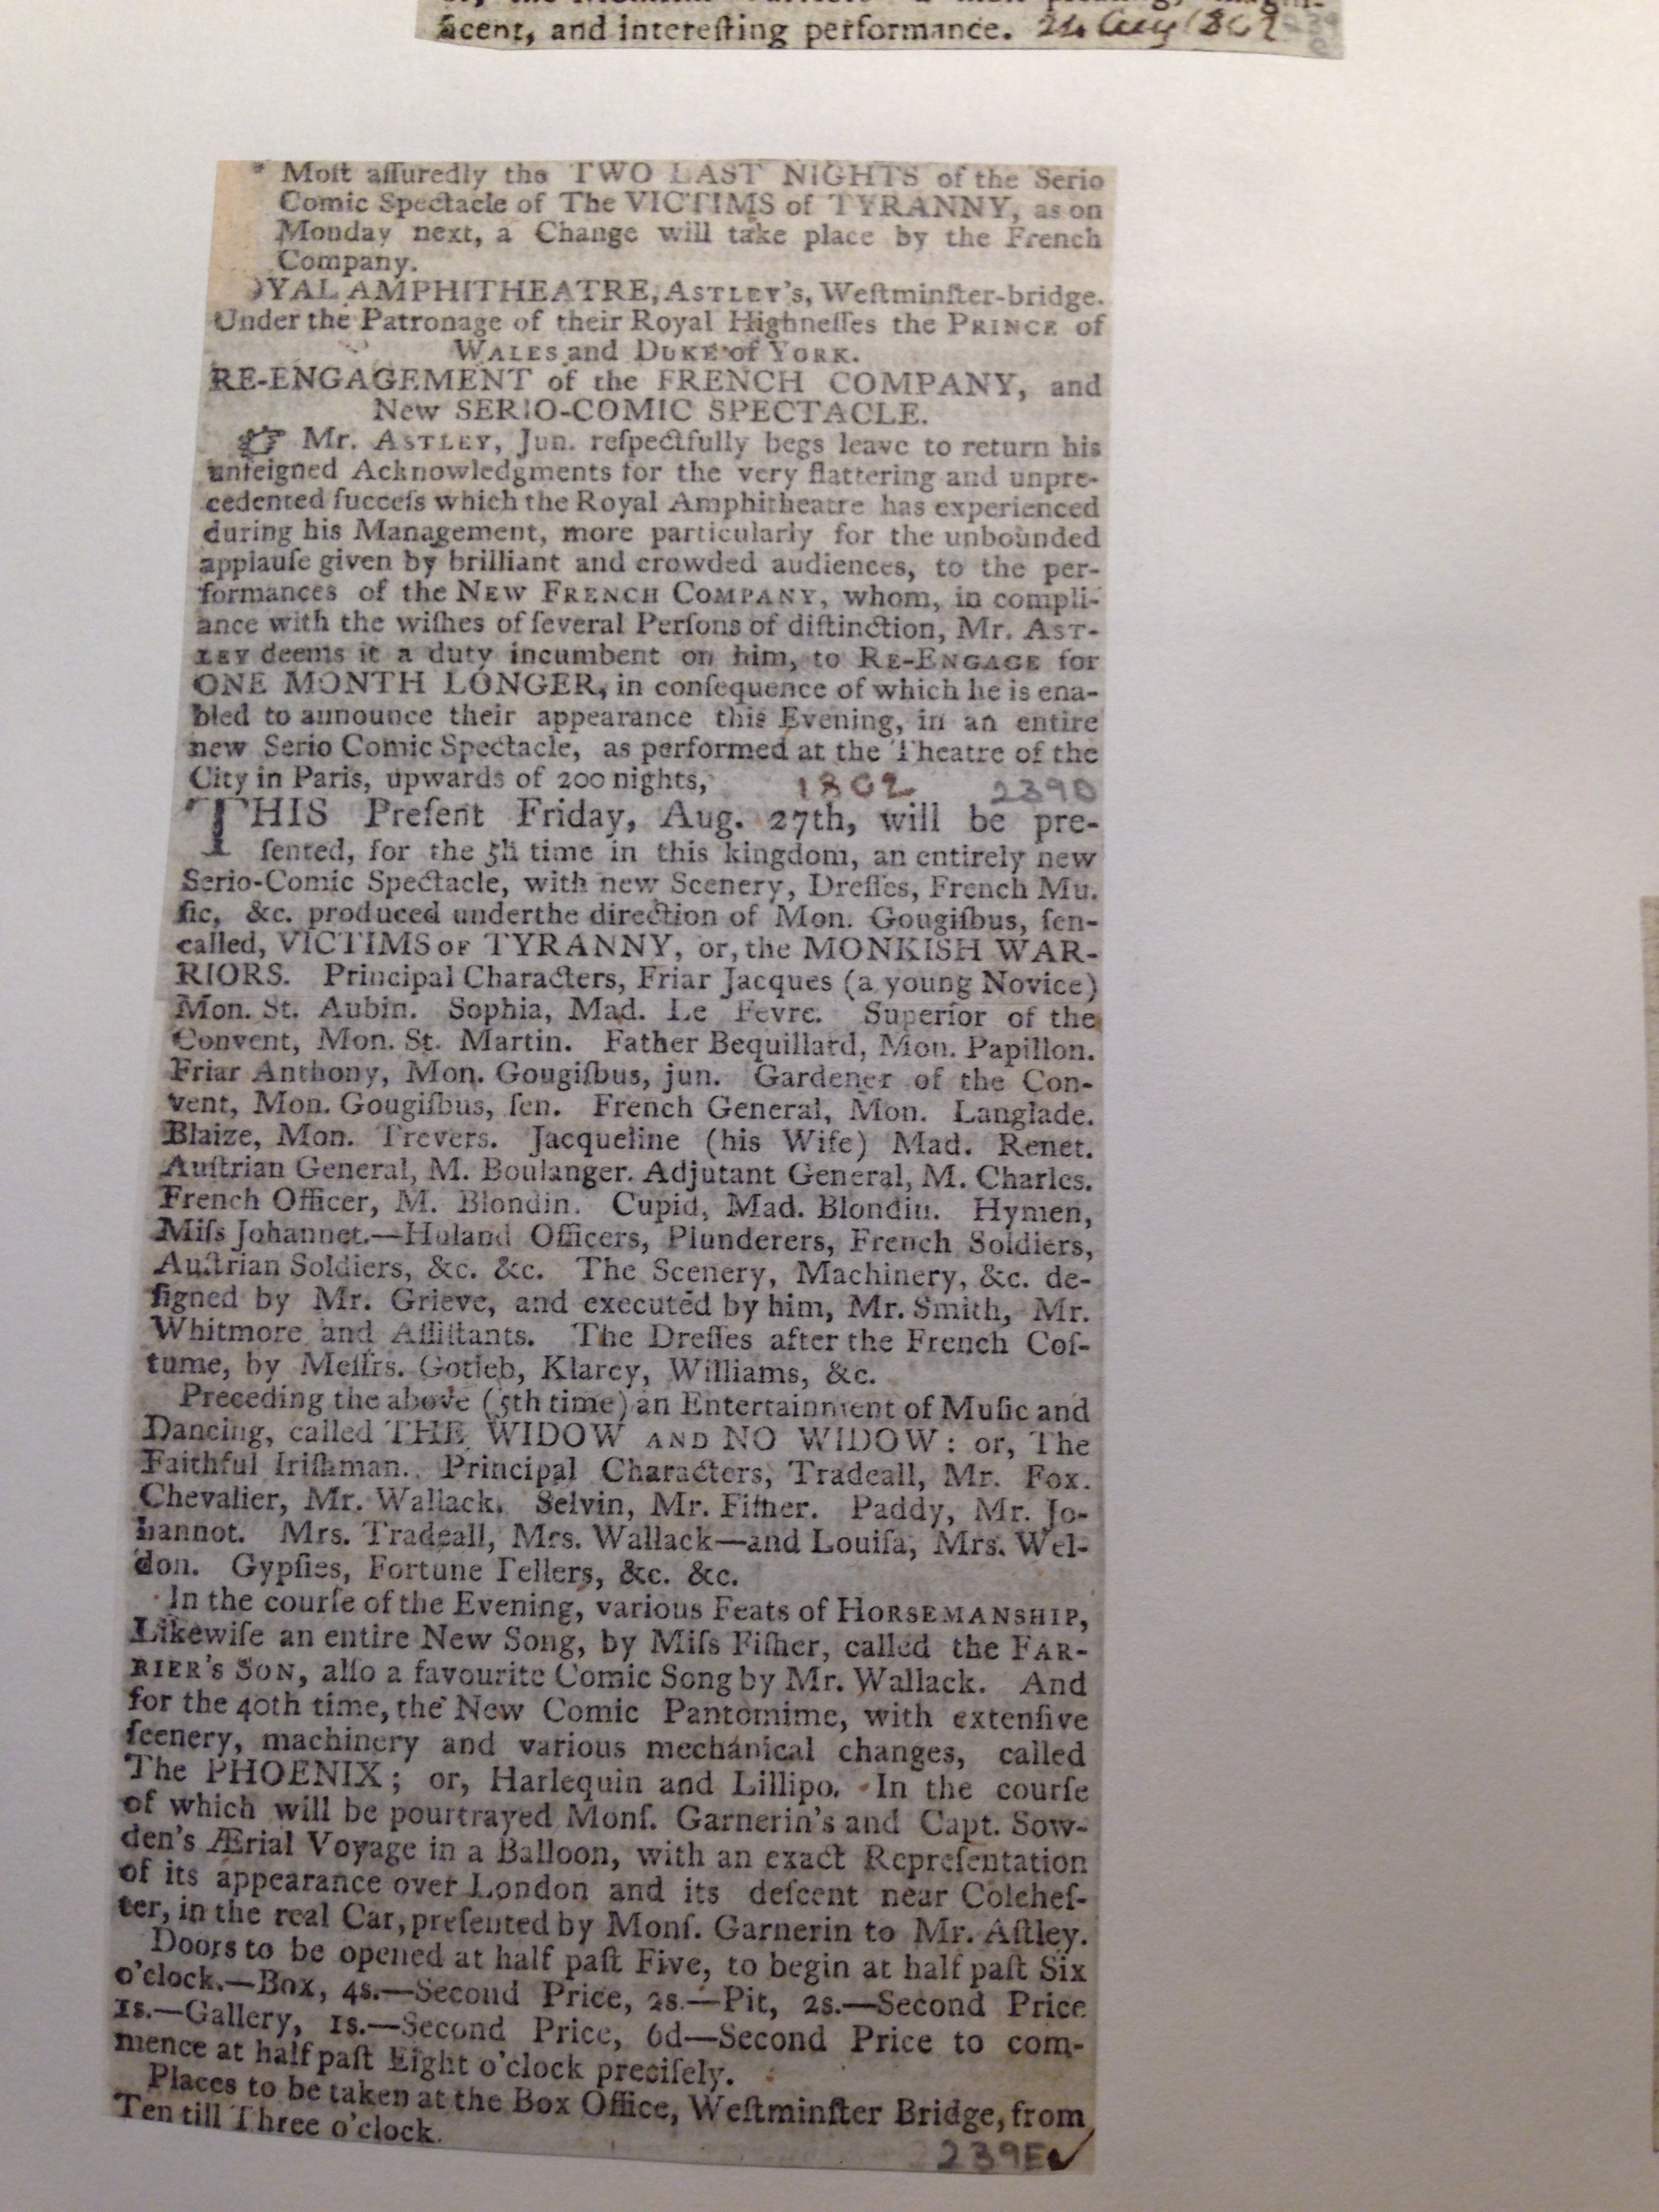 ficent, and intereſting performance. 24 Aug 1802
Moſt aſſuredly the TWO LAST NIGHTS of the Serio
Comic Spectacle of The VICTIMS of TYRANNY, as on
Monday next, a Change will take place by the French
Company.
OYAL AMPHITHEATRE, ASTLEY's, Weſtminſter-bridge.
Under the Patronage of their Royal Highneſſes the PRINCE of
WALES and DUKE of YORK.
RE-ENGAGEMENT of the FRENCH COMPANY, and
New SERIO-COMIC SPECTACLE.
☞ Mr. ASTLEY, Jun. reſpectfully begs leave to return his
unfeigned Acknowledgments for the very flattering and unpre-
cedented ſucceſs which the Royal Amphitheatre has experienced
during his Management, more particularly for the unbounded
applauſe given by brilliant and crowded audiences, to the per-
formances of the NEW FRENCH COMPANY, whom, in compli-
ance with the wiſhes of ſeveral Perſons of diſtinction, Mr. AST-
LEY deems it a duty incumbent on him, to RE-ENGAGE for
ONE MONTH LONGER, in conſequence of which he is ena-
bled to announce their appearance this Evening, in an entire
new Serio Comic Spectacle, as performed at the Theatre of the
City in Paris, upwards of 200 nights, 1802 239D
THIS Preſent Friday, Aug. 27th, will be pre-
ſented, for the 5th time in this kingdom, an entirely new
Serio-Comic Spectacle, with new Scenery, Dreſſes, French Mu.
ſic, &c. produced underthe direction of Mon. Gougiſbus, ſen-
called, VICTIMS OF TYRANNY, or, the MONKISH WAR-
RIORS. Principal Characters, Friar Jacques (a young Novice)
Mon. St. Aubin. Sophia, Mad. Le Fevre. Superior of the
Convent, Mon. St. Martin. Father Bequillard, Mon. Papillon.
Friar Anthony, Mon. Gougiſbus, jun. Gardener of the Con-
vent, Mon. Gougiſbus, ſen. French General, Mon. Langlade.
Blaize, Mon. Trevers. Jacqueline (his Wife) Mad. Renet.
Auſtrian General, M. Boulanger. Adjutant General, M. Charles.
French Officer, M. Blondin. Cupid, Mad. Blondin. Hymen,
Miſs Johannet.—Huland Officers, Plunderers, French Soldiers,
Auſtrian Soldiers, &c. &c. The Scenery, Machinery, &c. de-
ſigned by Mr. Grieve, and executed by him, Mr. Smith, Mr.
Whitmore and Aſſiſtants. The Dreſſes after the French Coſ-
tume, by Meſſrs. Gotleb, Klarey, Williams, &c.
Preceding the above (5th time) an Entertainment of Muſic and
Dancing, called THE WIDOW AND NO WIDOW: or, The
Faithful Iriſhman. Principal Characters, Tradeall, Mr. Fox.
Chevalier, Mr. Wallack. Selvin, Mr. Fiſher. Paddy, Mr. Jo-
hannot. Mrs. Tradeall, Mrs. Wallack—and Louiſa, Mrs. Wel-
don. Gypſies, Fortune Tellers, &c. &c.
In the courſe of the Evening, various Feats of HORSEMANSHIP,
Likewiſe an entire New Song, by Miſs Fiſher, called the FAR-
RIER'S SON, alſo a favourite Comic Song by Mr. Wallack. And
for the 40th time, the New Comic Pantomime, with extenſive
ſcenery, machinery and various mechanical changes, called
The PHOENIX; or, Harlequin and Lillipo. In the courſe
of which will be pourtrayed Monſ. Garnerin's and Capt. Sow-
den's Ærial Voyage in a Balloon, with an exact Repreſentation
of its appearance over London and its deſcent near Colcheſ-
ter, in the real Car, preſented by Monſ. Garnerin to Mr. Aſtley.
Doors to be opened at half paſt Five, to begin at half paſt Six
o'clock.—Box, 4s.—Second Price, 2s.—Pit, 2s.—Second Price
1s.—Gallery, 1s.—Second Price, 6d—Second Price to com-
mence at half paſt Eight o'clock preciſely.
Places to be taken at the Box Office, Weſtminſter Bridge, from
Ten till Three o'clock.
239E✓